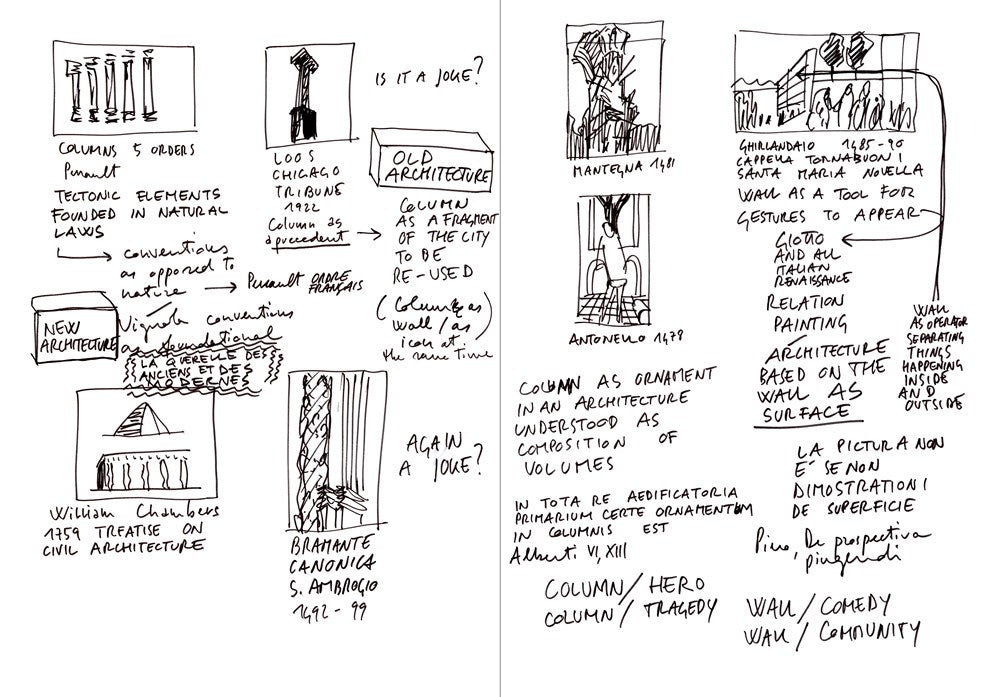 COLUMNS 5 ORDERS
Perrault
TECTONIC ELEMENTS
FOUNDED IN NATURAL
LAWS
conventions
as opposed to
nature
Perrault ORDRE
FRANÇAIS
NEW
ARCHITECTURE
Vignola conventions
as foundational
LA QUERELLE DES
ANCIENS ET DES
MODERNES
William Chambers
1759 TREATISE ON
CIVIL ARCHITECTURE
LOOS
CHICAGO
TRIBUNE
1922
Column as
a precedent
IS IT A JOKE?
OLD
ARCHITECTURE
COLUMN
AS A FRAGMENT
OF THE CITY
TO BE
RE-USED
(Column as
wall / as
icon at
the same time)
AGAIN
A JOKE?
BRAMANTE
CANONICA
S. AMBROGIO
1492-99
MANTEGNA 1481
ANTONELLO 1478
COLUMN AS ORNAMENT
IN AN ARCHITECTURE
UNDERSTOOD AS
COMPOSITION OF
VOLUMES
IN TOTA RE AEDIFICATORIA
PRIMARIUM CERTE ORNAMENTUM
IN COLUMNIS EST
Alberti VI, XIII
COLUMN/HERO
COLUMN/TRAGEDY
GHIRLANDAIO 1485-90
CAPPELLA TORNABUONI
SANTA MARIA NOVELLA
WALL AS A TOOL FOR
GESTURES TO APPEAR
GIOTTO
AND ALL
ITALIAN
RENAISSANCE
RELATION
PAINTING
ARCHITECTURE
BASED ON THE
WALL AS
SURFACE
WALL
AS OPERATOR
SEPARATING
THINGS
HAPPENING
INSIDE
AND
OUTSIDE
LA PICTURA NON
E' SE NON
DIMOSTRATIONI
DE SUPERFICIE
Piero, De prospectiva
pingendi
WALL/COMEDY
WALL/COMMUNITY